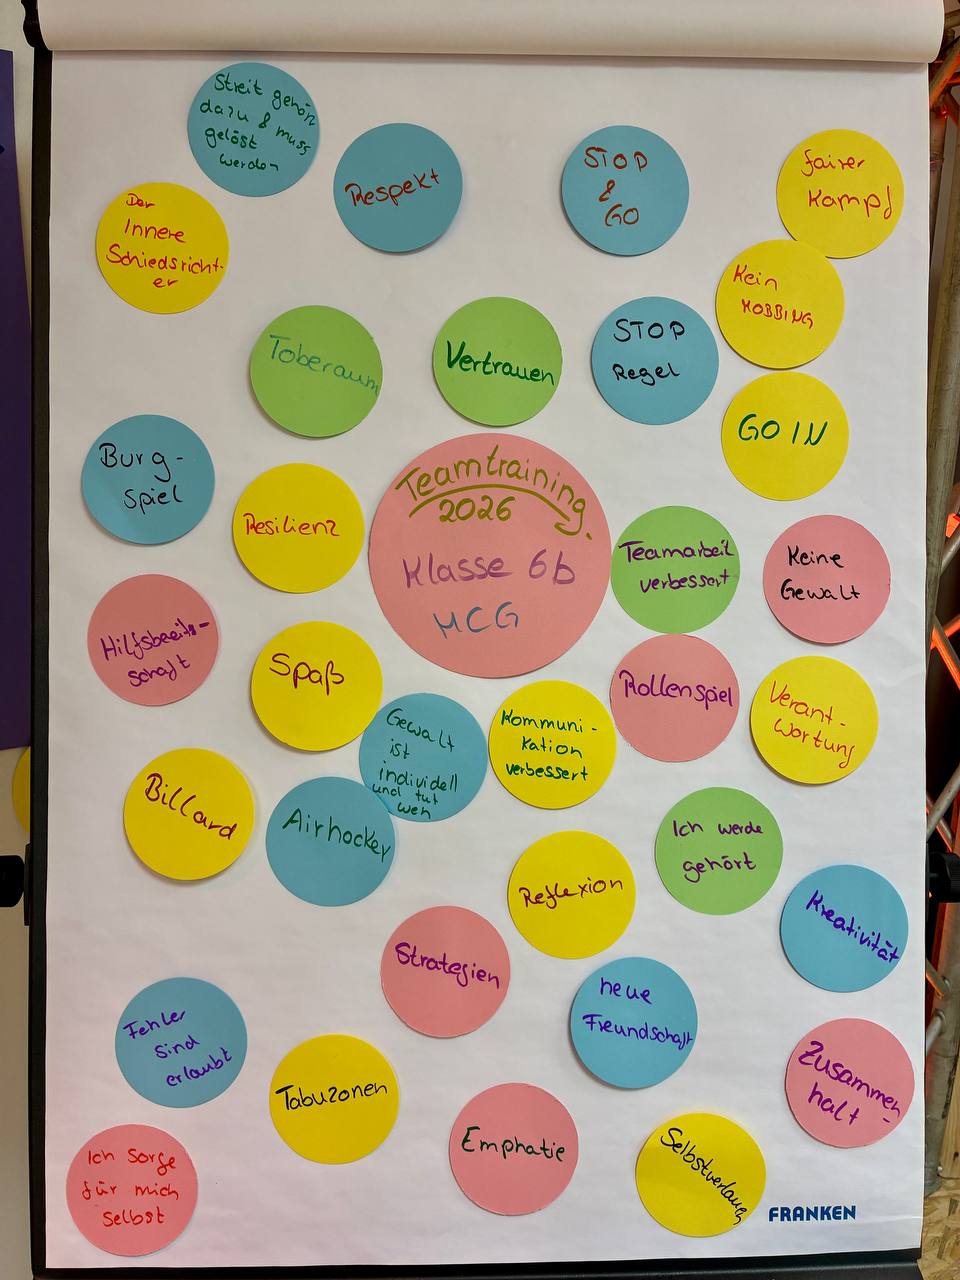 Streit gehört
dazu & muss
gelöst
werden
Respekt
STOP
&
GO
fairer
Kampf
Der
Innere
Schiedsricht-
er
Kein
MOBBING
Toberaum
Vertrauen
STOP
Regel
GO IN
Burg-
spiel
Resilienz
Teamtraining
2026
Klasse 6b
MCG
Teamarbeit
verbessert
Keine
Gewalt
Hilfsbereits-
schaft
Spaß
Gewalt
ist
individell
und tut
weh
Kommuni-
kation
verbessert
Rollenspiel
Verant-
wortung
Billard
Airhockey
Ich werde
gehört
Reflexion
Kreativität
Strategien
neue
Freundschaft
Fehler
sind
erlaubt
Tabuzonen
Zusammen-
halt
Emphatie
Ich Sorge
für mich
Selbst
FRANKEN